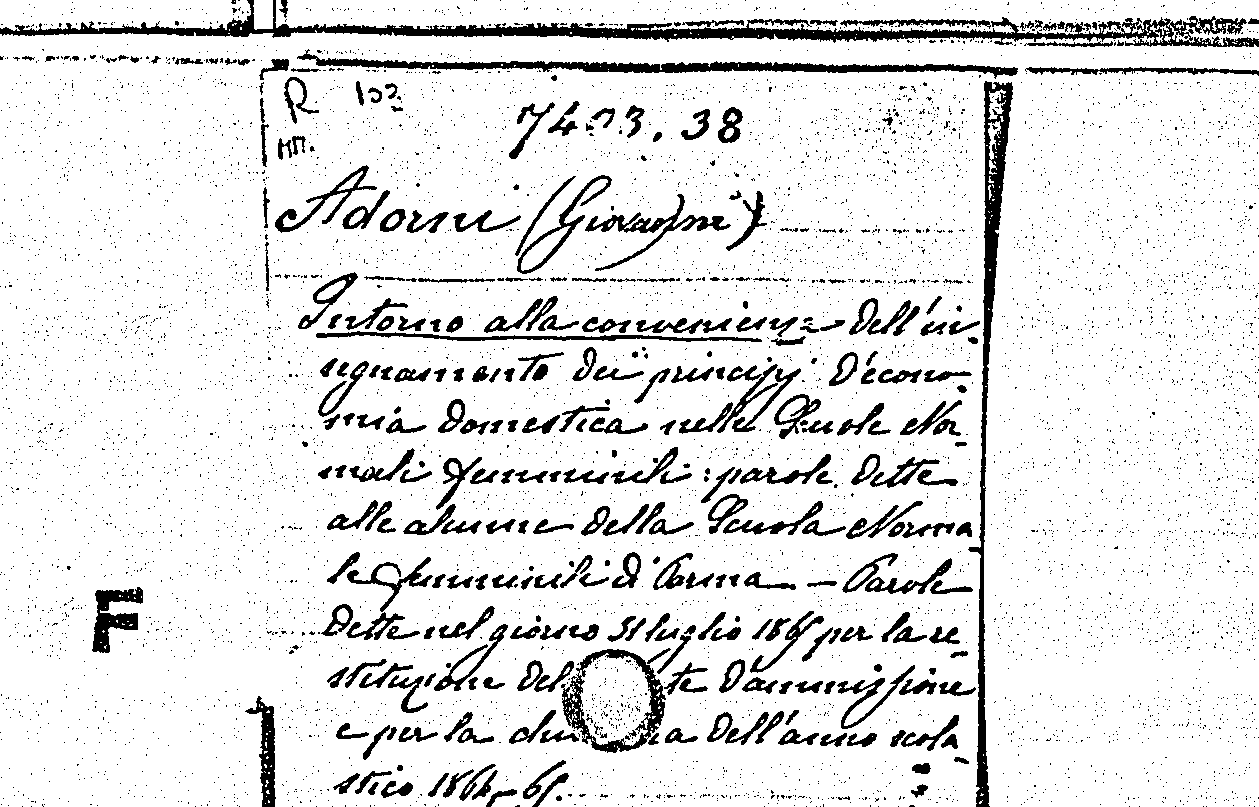 R 102
7403.38
MM.
Adorni (Giovanni)
Intorno alla convenienza dell'in-
segnamento dei principj d'econo-
mia domestica nelle Scuole Nor-
mali femminili: parole dette
alle alunne della Scuola Norma-
le femminili di Parma. — Parole
dette nel giorno 31 luglio 1865 per la re-
stituzione del te d'ammissione
e per la dell'anno scola-
stico 1864-65.
F